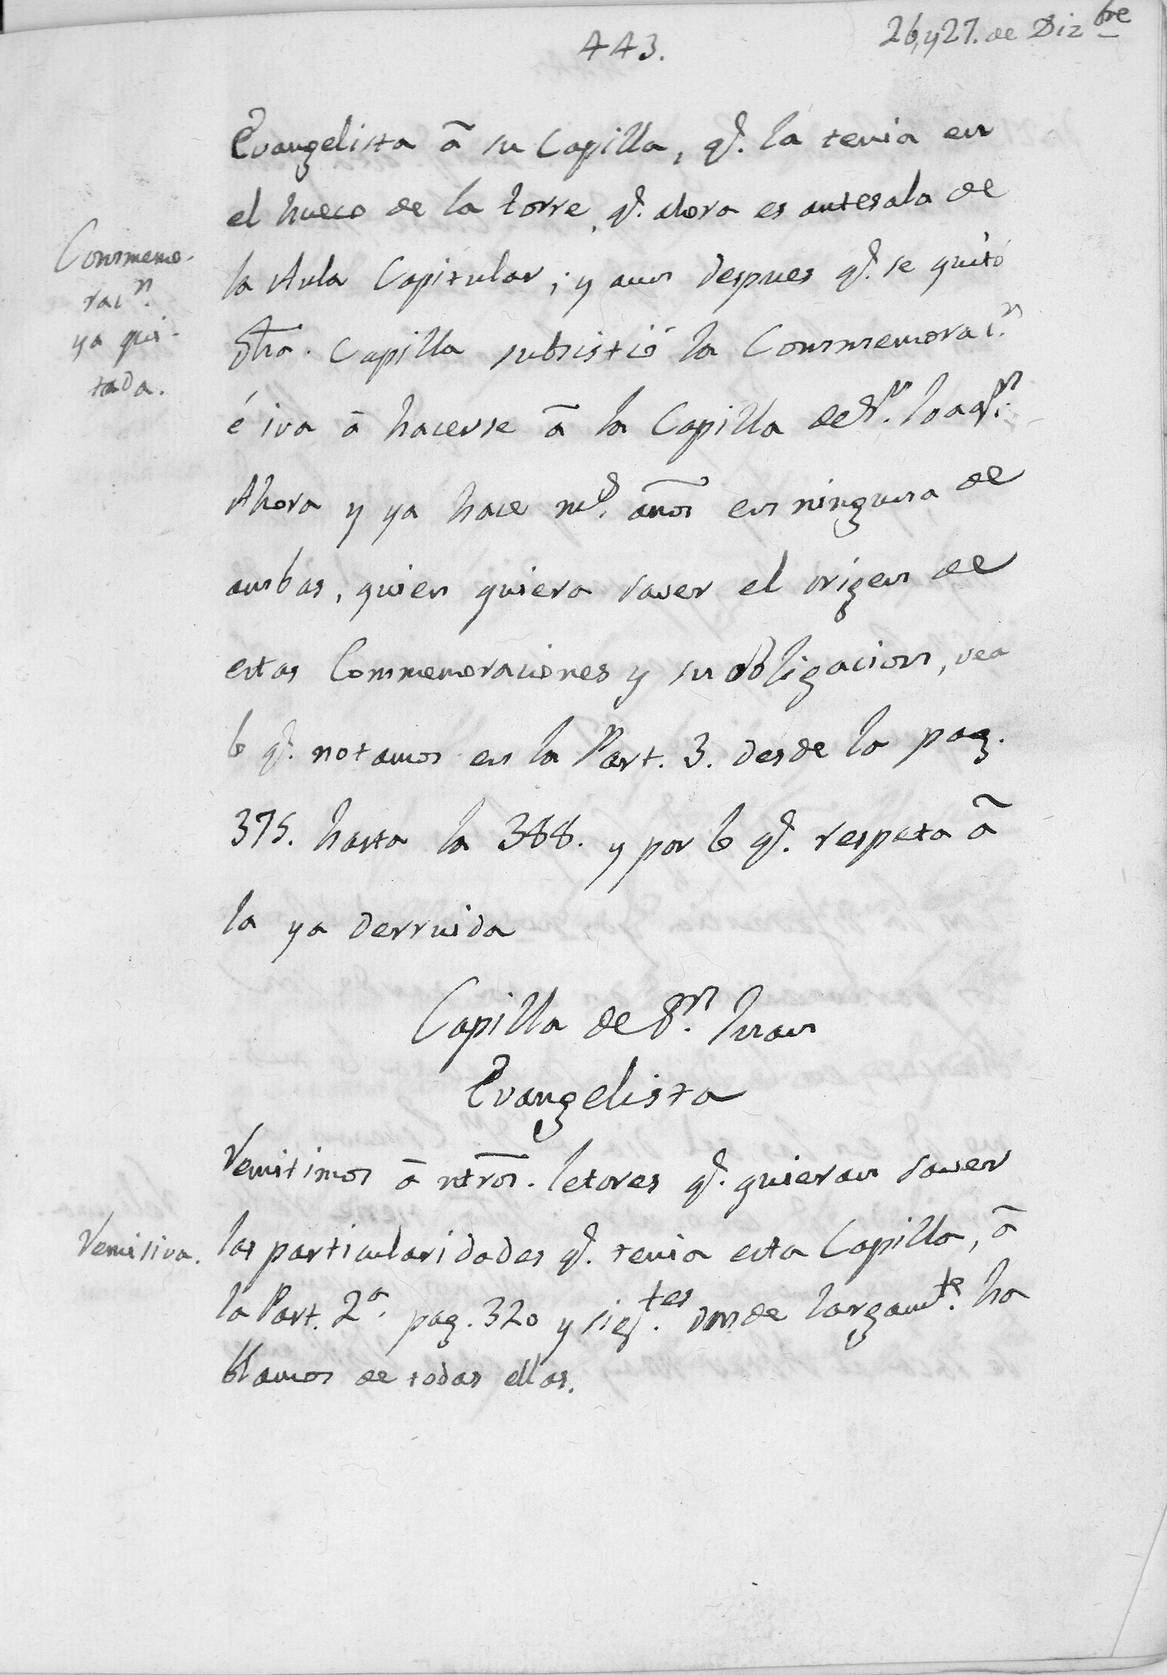 443.
26, y 27. de Dizbre
Evangelista â su Capilla, q.e la tenia en
el hueco de la torre, q.e ahora es antesala de
la Aula Capitular; y aun despues q.e se quitó
dha. Capilla subsistió la Conmemorac.n
é iva â hacerse â la Capilla de S.n Joaq.n:
Ahora y ya hace m.s años en ninguna de
ambas, quien quiera saver el origen de
estas Conmemoraciones y su obligacion, vea
lo q.e notamos en la Part. 3. desde la pag.
375. hasta la 388. y por lo q.e respeta â
la ya derruida
Conmemo-
rac.n
ya qui-
tada.
Capilla de S.n Juan
Evangelista
Remitimos â ntros. letores q.e quieran saver
las particularidades q.e tenia esta Capilla, â
la Part. 2.a pag. 320 y sig.tes donde largam.te ha
blamos de todas ellas.
Remisiva.